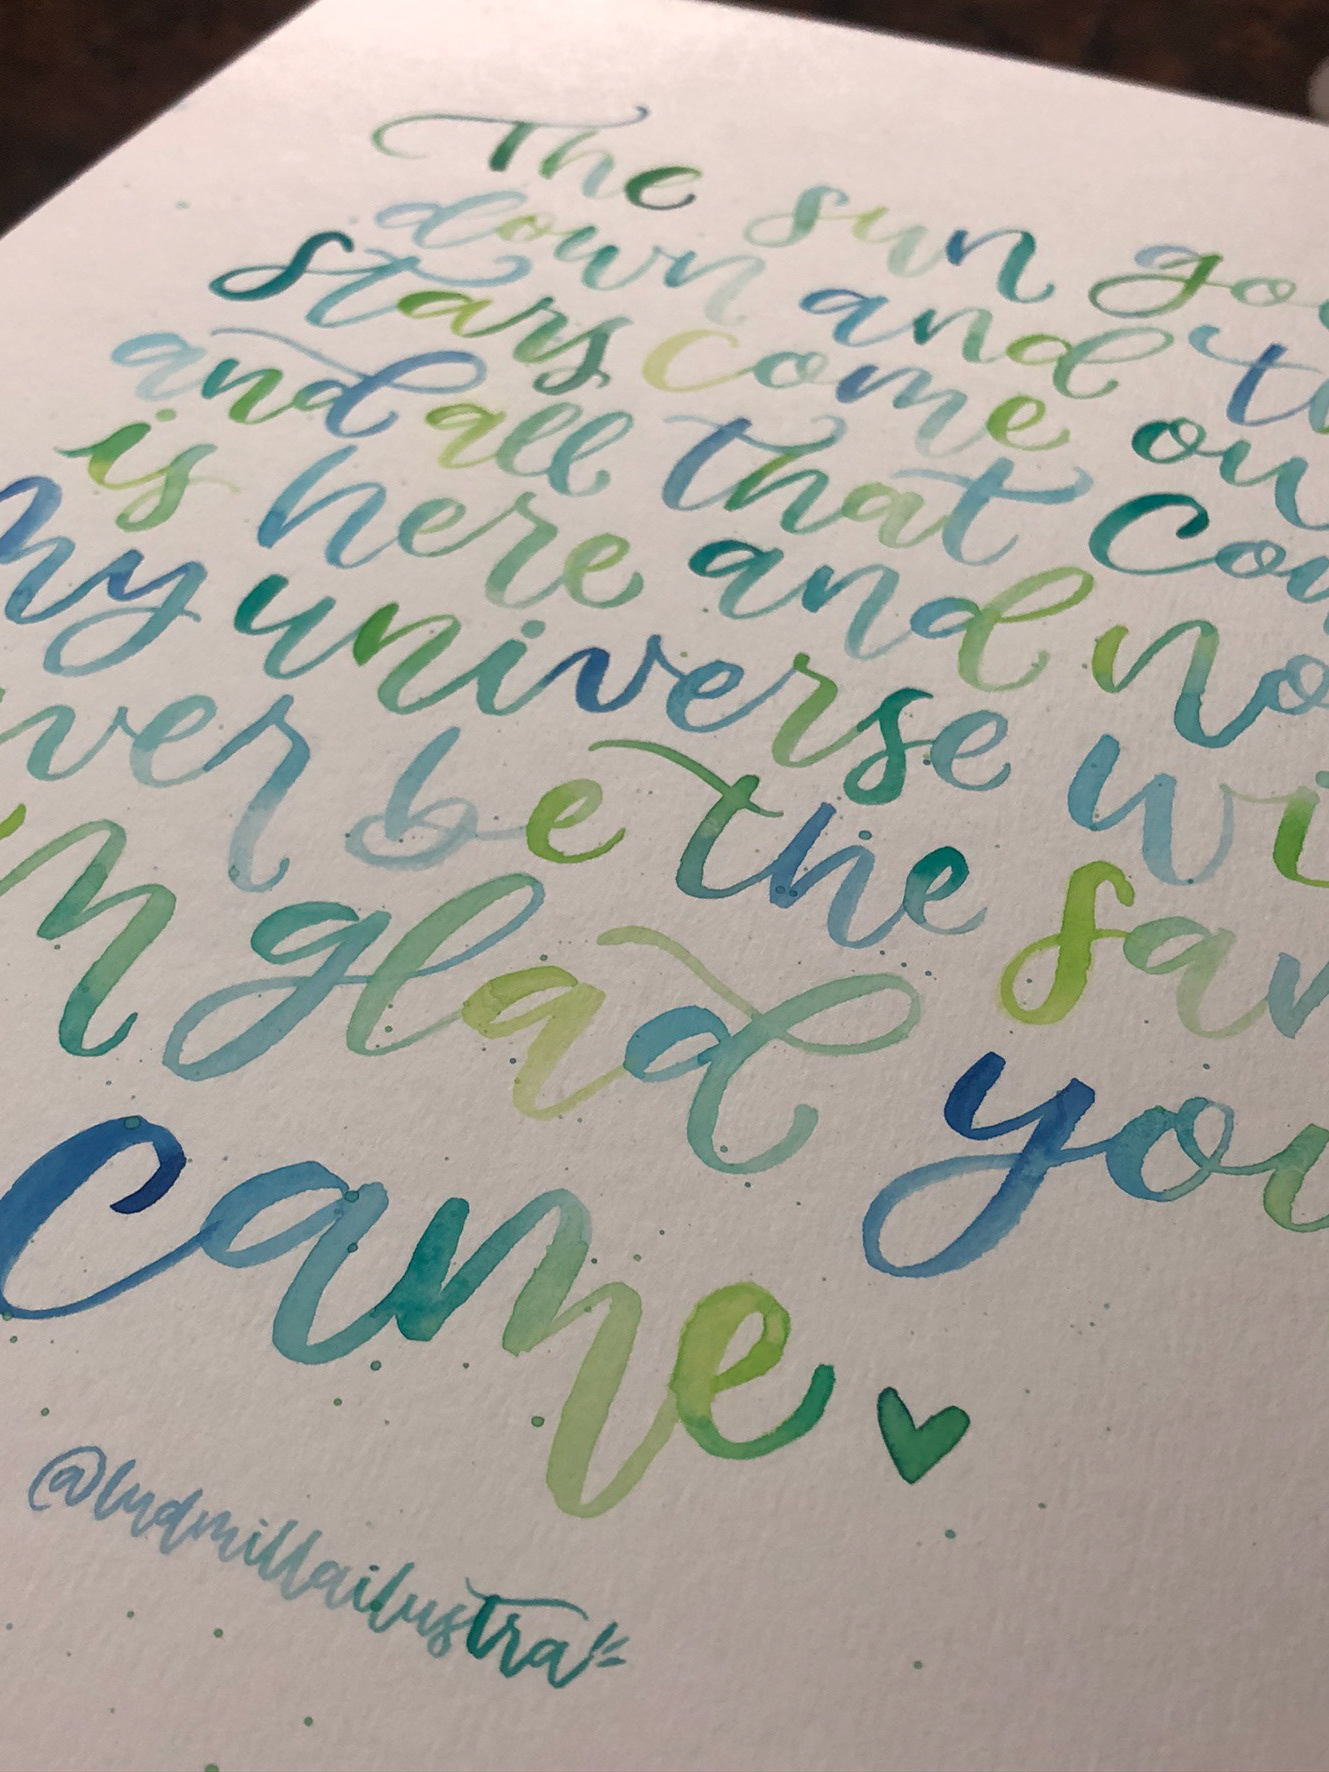 The sun goe
down and th
stars come ou
and all that cou
is here and no
my universe wi
ver be the sam
'm glad you
came
@ludmillailustra